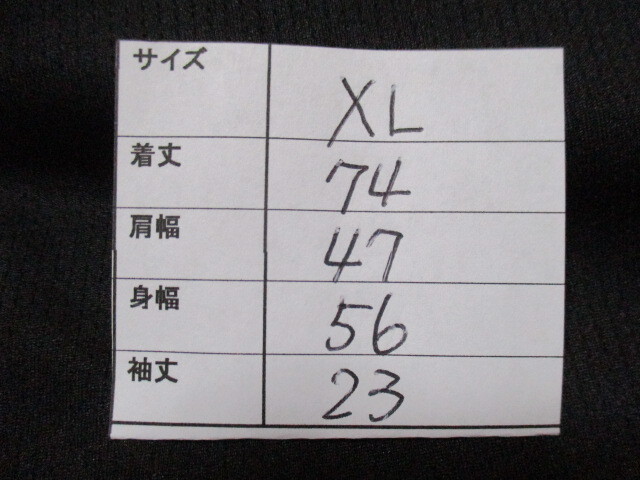 サイズ XL
着丈 74
肩幅 47
身幅 56
袖丈 23